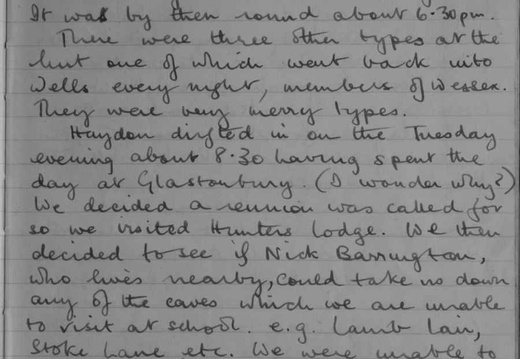 It was by then round about 6·30pm.
There were three other types at the
hut one of which went back into
Wells every night, members of Wessex.
They were very merry types.
Haydon drifted in on the Tuesday
evening about 8·30 having spent the
day at Glastonbury. (I wonder why?)
We decided a reunion was called for
so we visited Hunters Lodge. We then
decided to see if Nick Barrington,
who lives nearby, could take us down
any of the caves which we are unable
to visit at school. e.g. Lamb Lair,
Stoke Lane etc. We were unable to